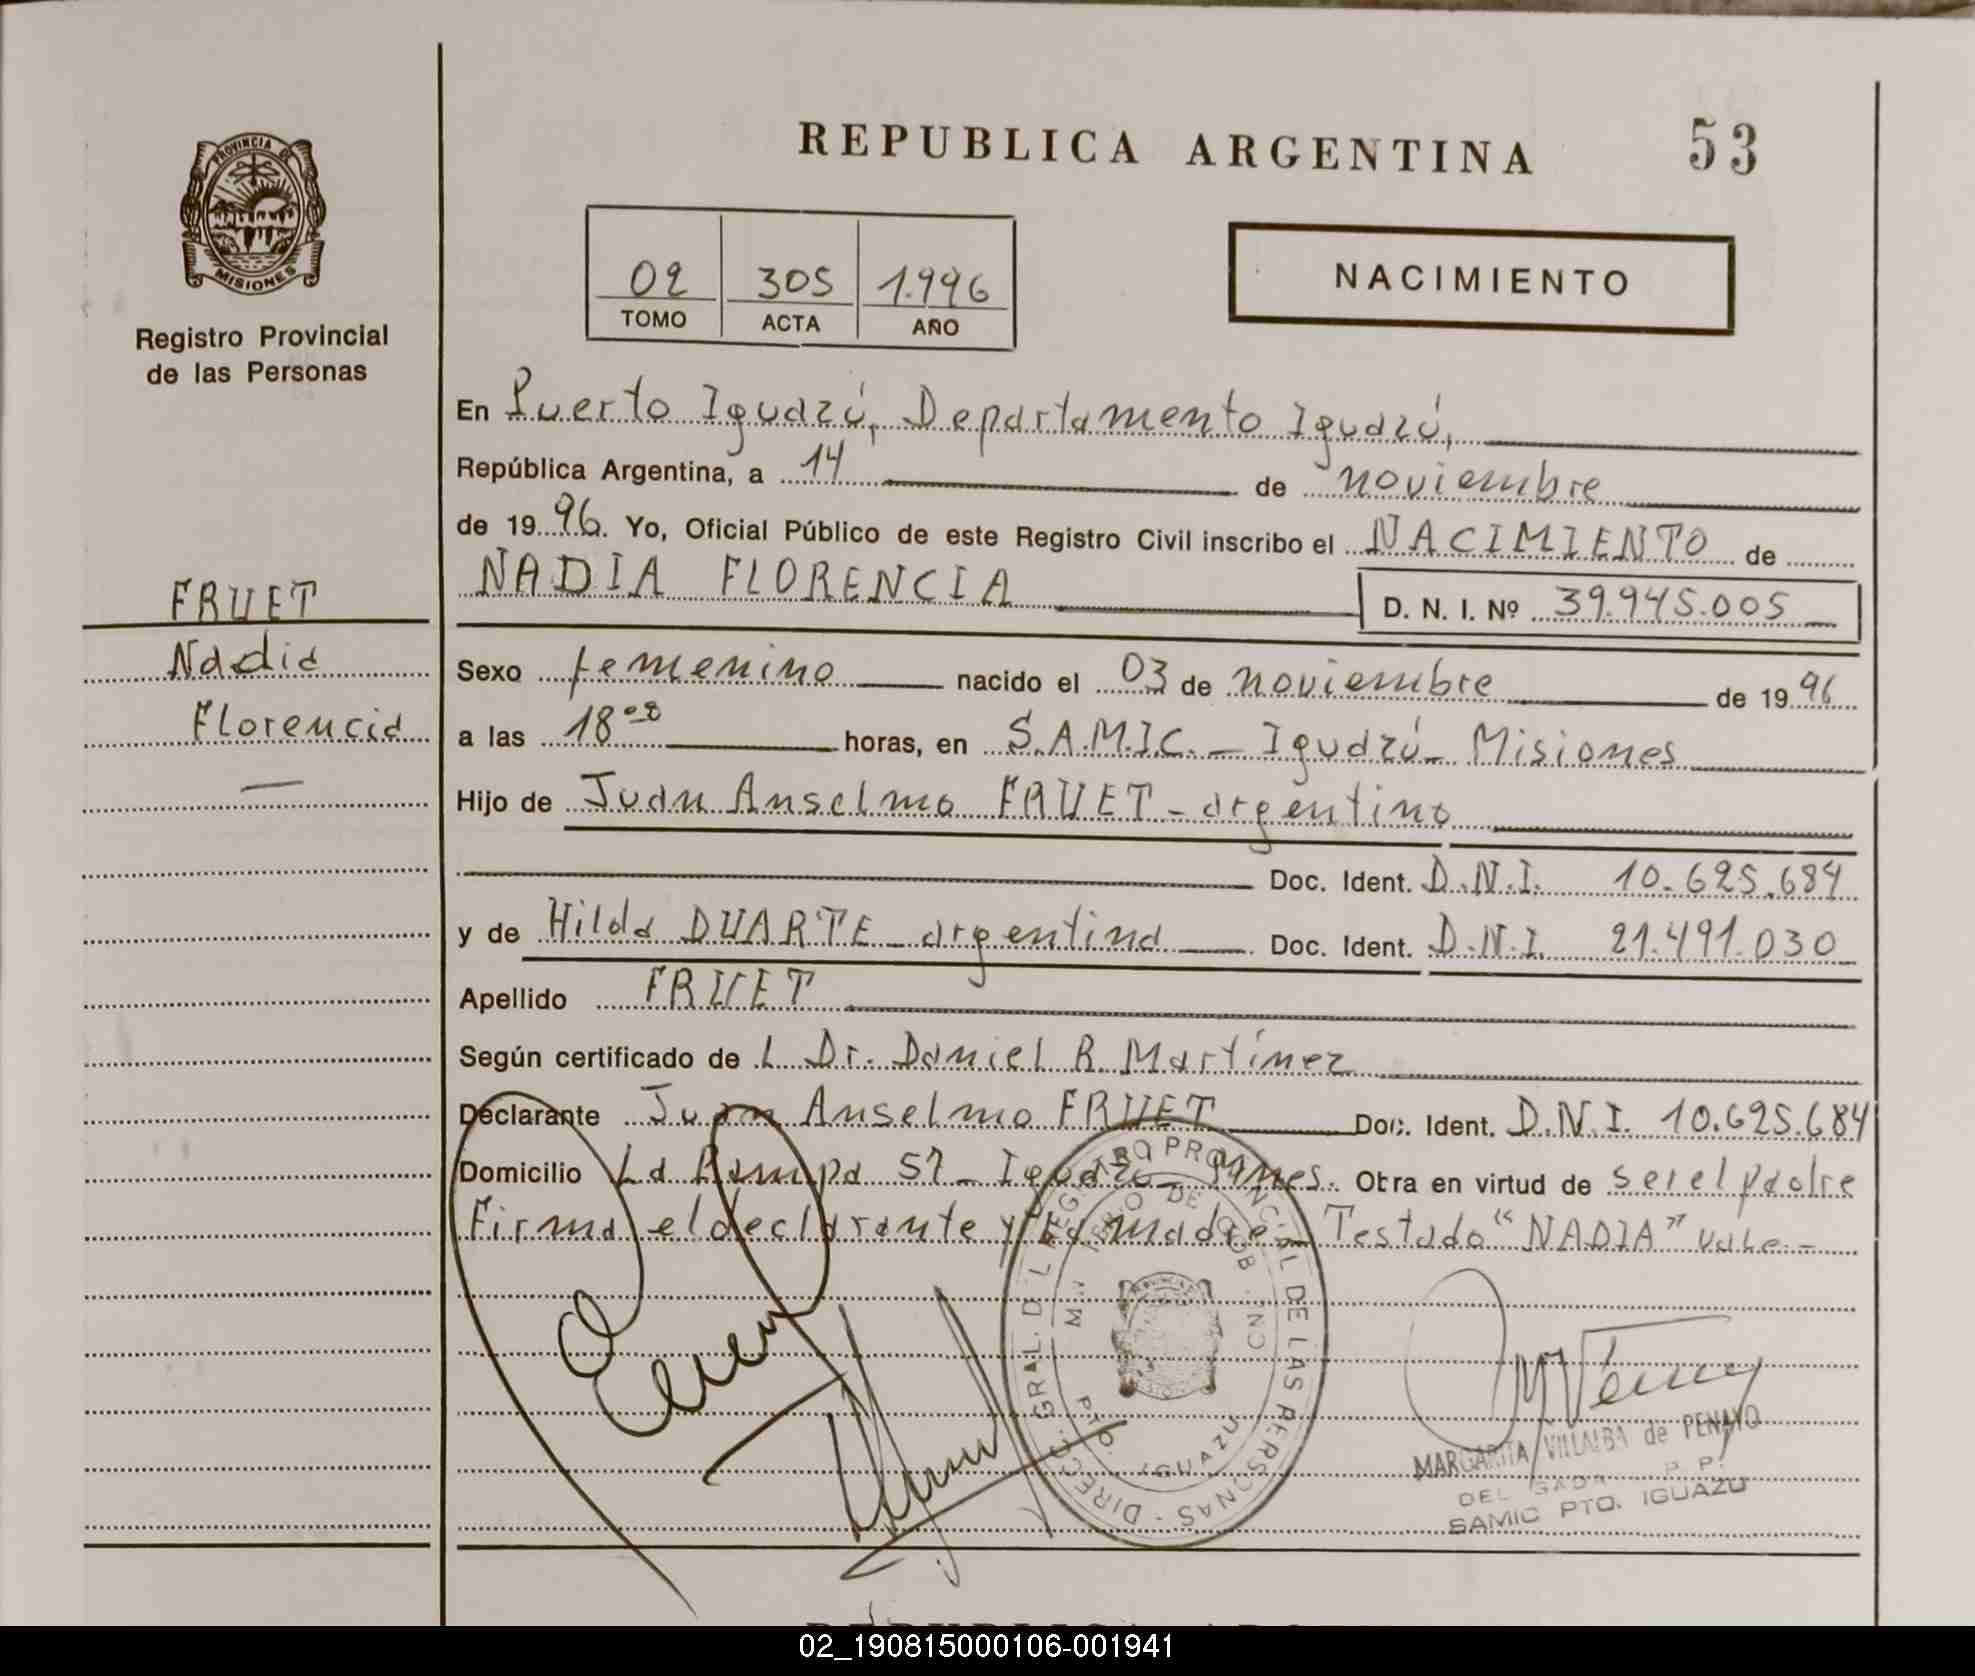 REPUBLICA ARGENTINA 53
PROVINCIA DE
MISIONES
Registro Provincial
de las Personas
02 305 1.996
TOMO ACTA AÑO
NACIMIENTO
En Puerto Iguazú, Departamento Iguazú,
República Argentina, a 14 de noviembre
de 1996. Yo, Oficial Público de este Registro Civil inscribo el NACIMIENTO de
NADIA FLORENCIA D. N. I. Nº 39.945.005
FRUET
Nadia
Florencia
Sexo femenino nacido el 03 de noviembre de 1996
a las 18 horas, en S.A.M.I.C. - Iguazú - Misiones
Hijo de Juan Anselmo FRUET - argentino
Doc. Ident. D.N.I. 10.625.684
y de Hilda DUARTE - argentina Doc. Ident. D.N.I. 21.491.030
Apellido FRUET
Según certificado de L Dr. Daniel R. Martínez
Declarante Juan Anselmo FRUET Doc. Ident. D.N.I. 10.625.684
Domicilio La Pampa 57 - Iguazú - Obra en virtud de ser el padre
Firma el declarante y la madre - Testado "NADIA" vale -
DIRECC. GRAL. DEL REGISTRO PROVINCIAL DE LAS PERSONAS
PTO. IGUAZU
MARGARITA VILLALBA de PENAYO
SAMIC PTO. IGUAZU
02_190815000106-001941